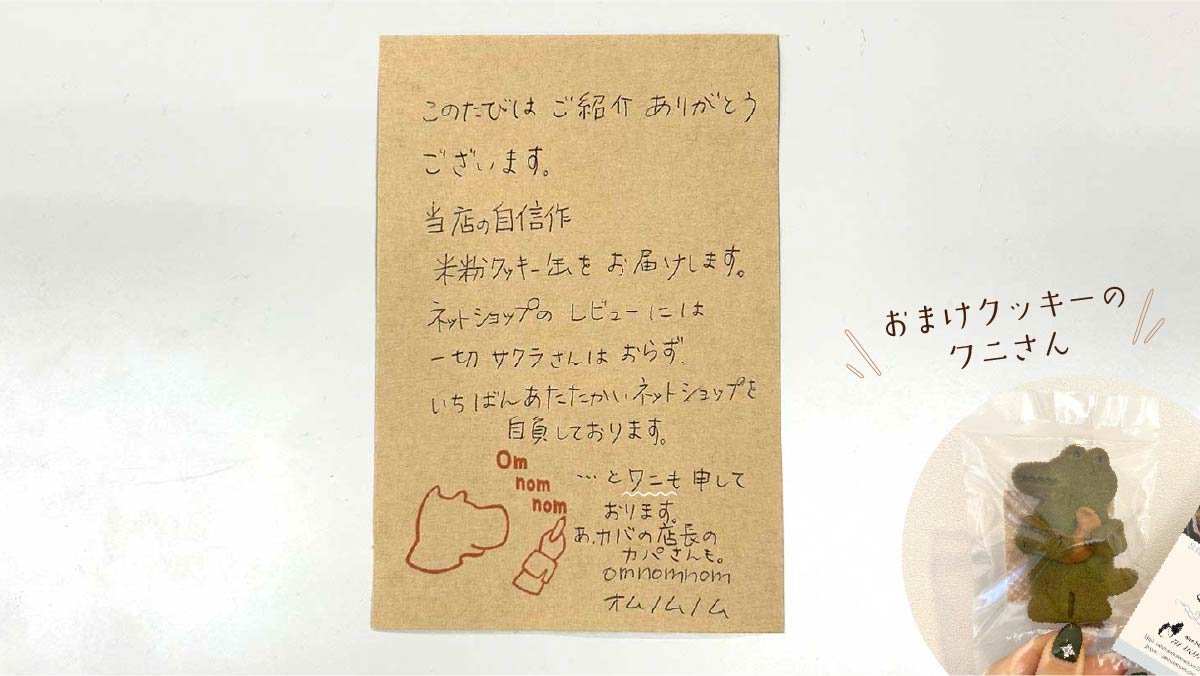 このたびは ご紹介 ありがとう
ございます。
当店の自信作
米粉クッキー缶を お届けします。
ネットショップの レビューには
一切 サクラさんは おらず、
いちばんあたたかいネットショップを
自負しております。
Om
nom
nom
…とワニも申して
おります。
あ、カバの店長の
カバさんも。
omnomnom
オムノムノム
おまけクッキーの
クニさん